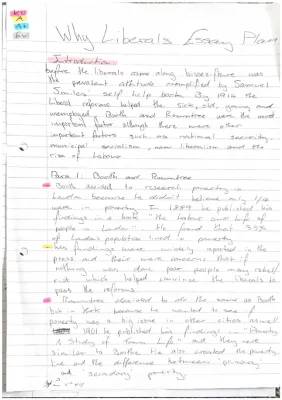 KU
A
A+
EV
Why Liberals Essay Plan
Introduction
Before the liberals came along laissez-faire was
the prevalent attitude exemplified by Samuel
Smiles' self help book. By 1914 the
liberal reforms helped the sick, old, young and
unemployed. Booth and Rowntree were the most
important factor although there were other
important factors such as national security,
municipal socialism, new liberalism and the
rise of Labour.
Para 1: Booth and Rowntree
Booth decided to research poverty in
London because he didn't believe that 1/4
were in poverty. In 1889 he published his
findings in a book "The Labour and Life of
people in London". He found that 35%
of London's population lived in poverty.
His findings were widely reported in the
press and there were concerns that if
nothing was done poor people may rebel/
riot which helped convince the liberals to
pass the reforms.
Rowntree decided to do the same as Booth
but in York because he wanted to see if
poverty was a big issue in other cities as well
1901 he published his findings in "Poverty
A Study of Town Life" and they were
similar to Booth's. He also created the poverty
line and the difference between 'primary
and secondary' poverty.